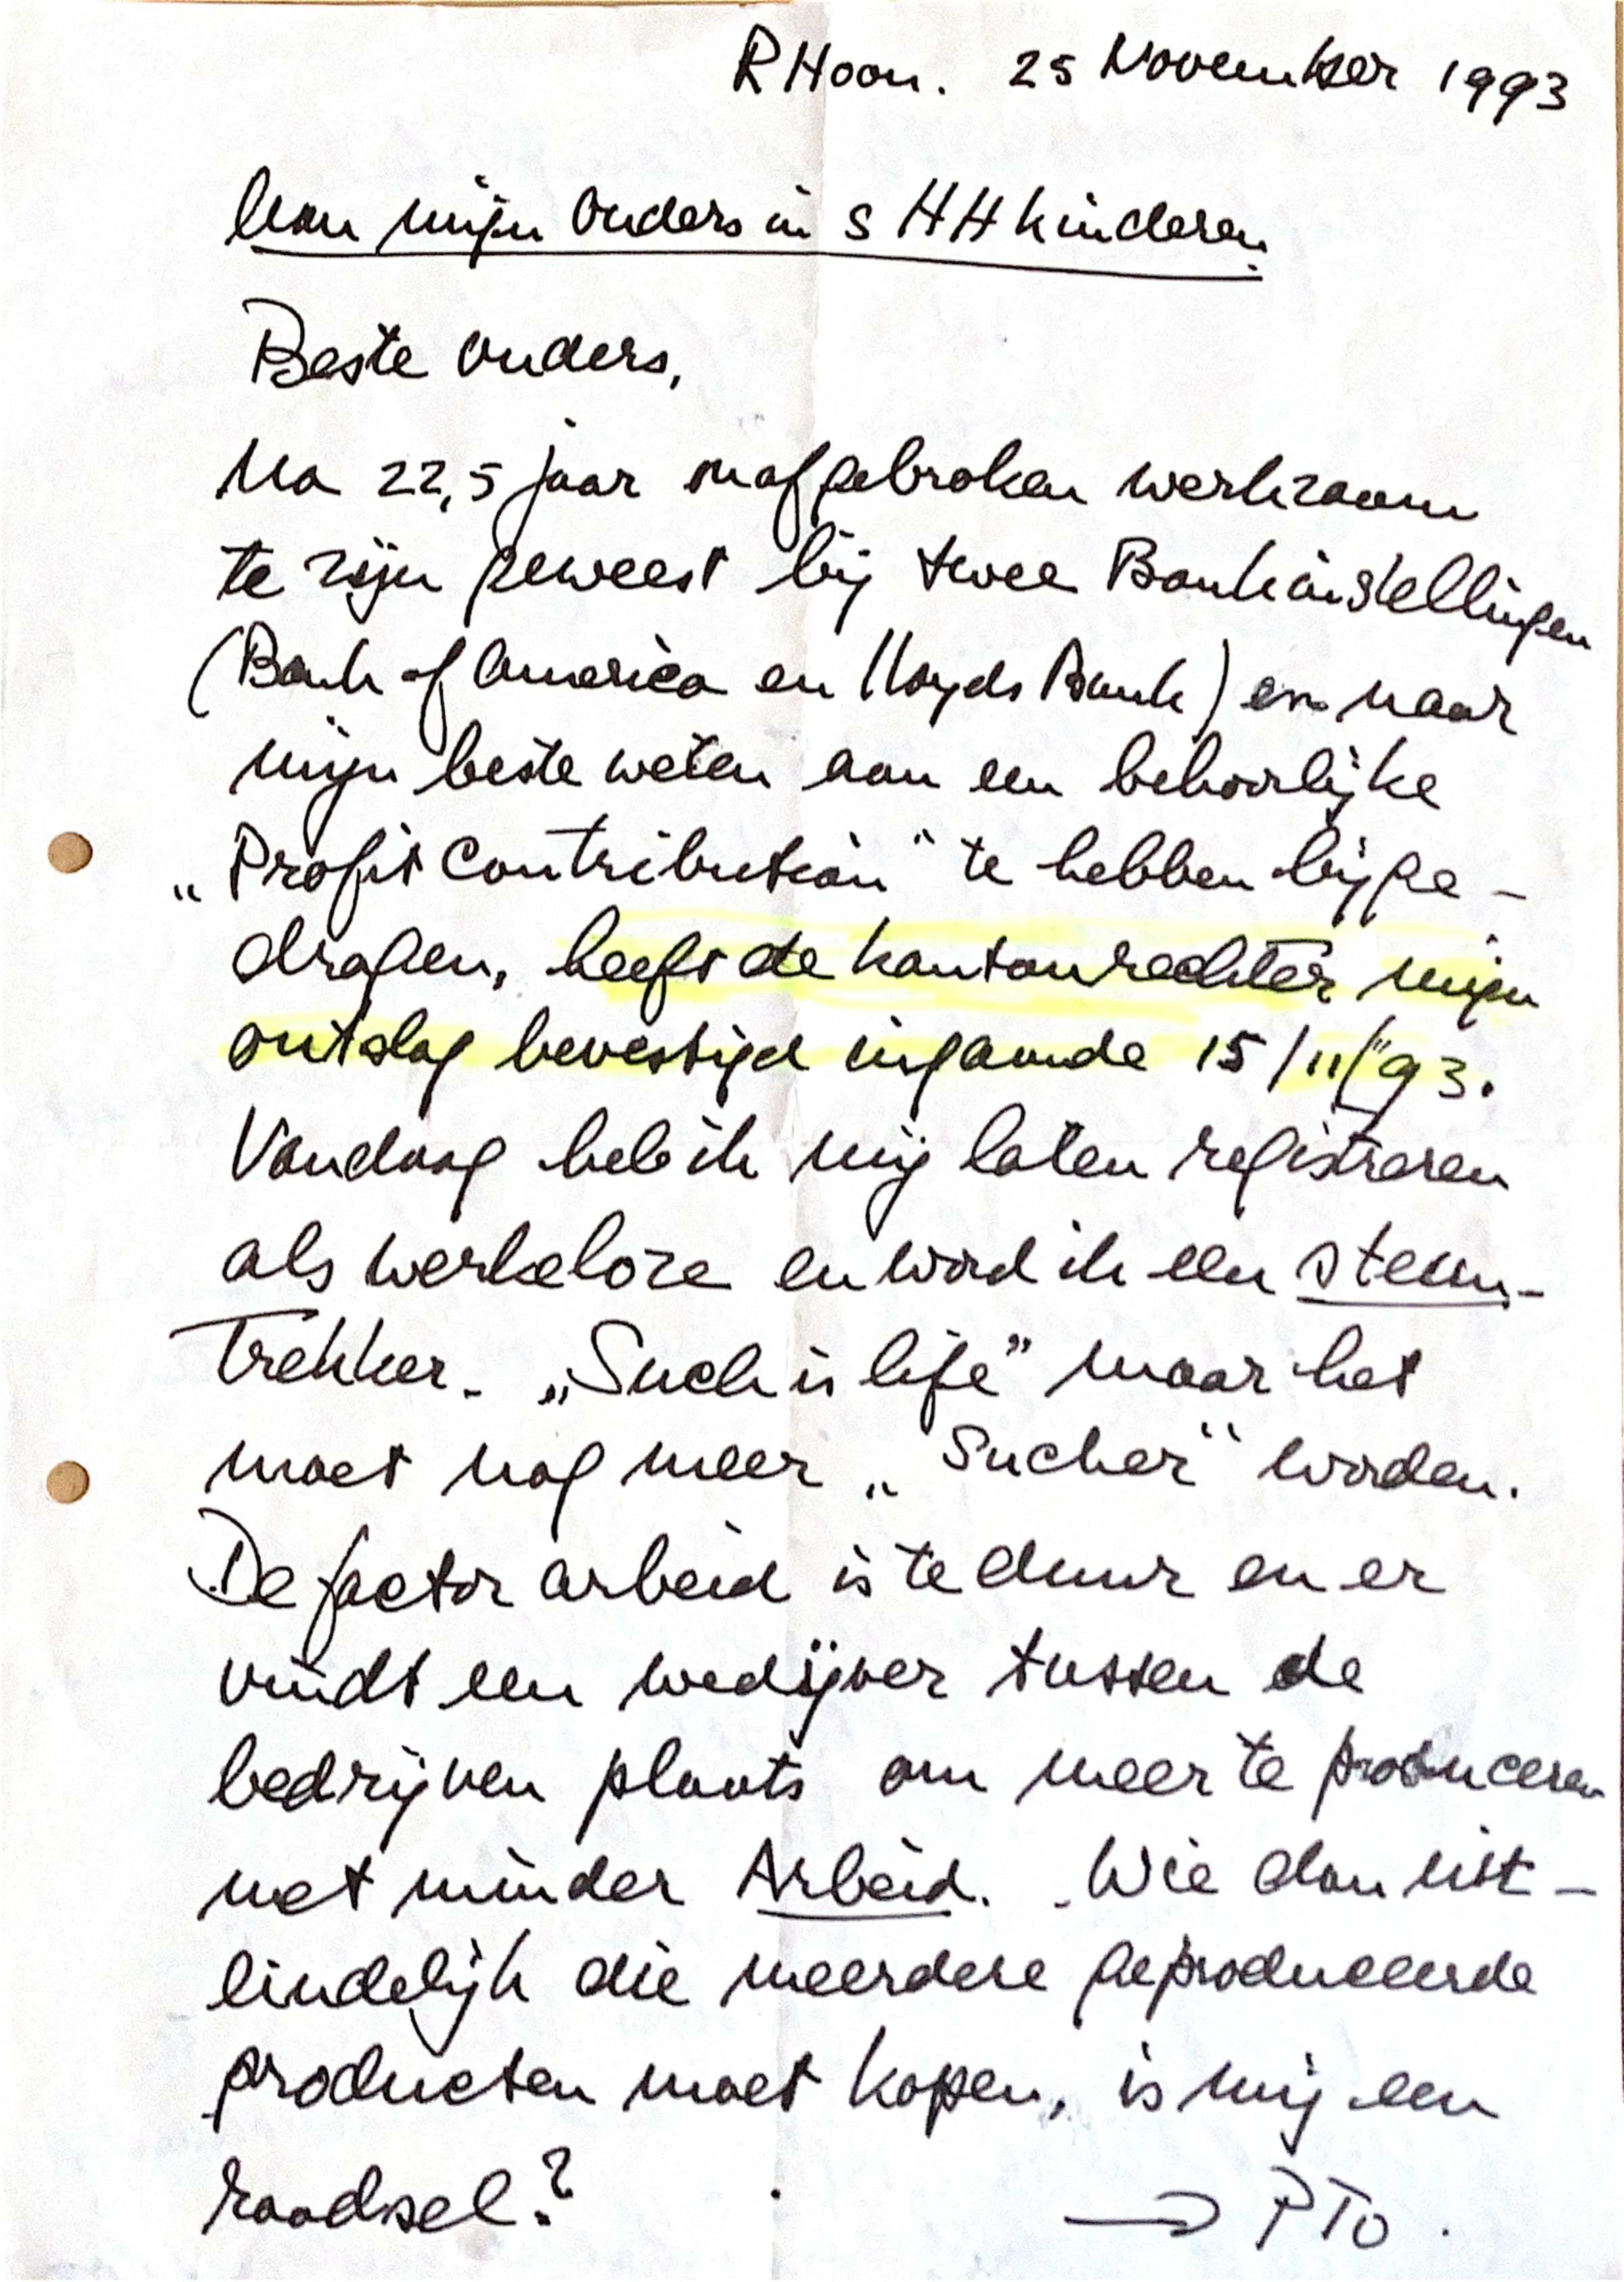 RHoon. 25 November 1993
Aan mijn Ouders en s HH kinderen.
Beste Ouders,
Na 22,5 jaar onafgebroken werkzaam
te zijn geweest bij twee Bankinstellingen
(Bank of America en Lloyds Bank) en naar
mijn beste weten aan een behoorlijke
„Profit Contribution" te hebben bijge-
dragen, heeft de kantonrechter mijn
ontslag bevestigd ingaande 15/11/'93.
Vandaag heb ik mij laten registreren
als werkeloze en word ik een steun-
Trekker. „Such is life" maar het
moet nog meer „Sucher" worden.
De factor arbeid is te duur en er
vindt een wedijver tussen de
bedrijven plaats om meer te produceren
met minder Arbeid. Wie dan uit-
eindelijk die meerdere geproduceerde
producten moet kopen, is mij een
raadsel?
→ PTO.